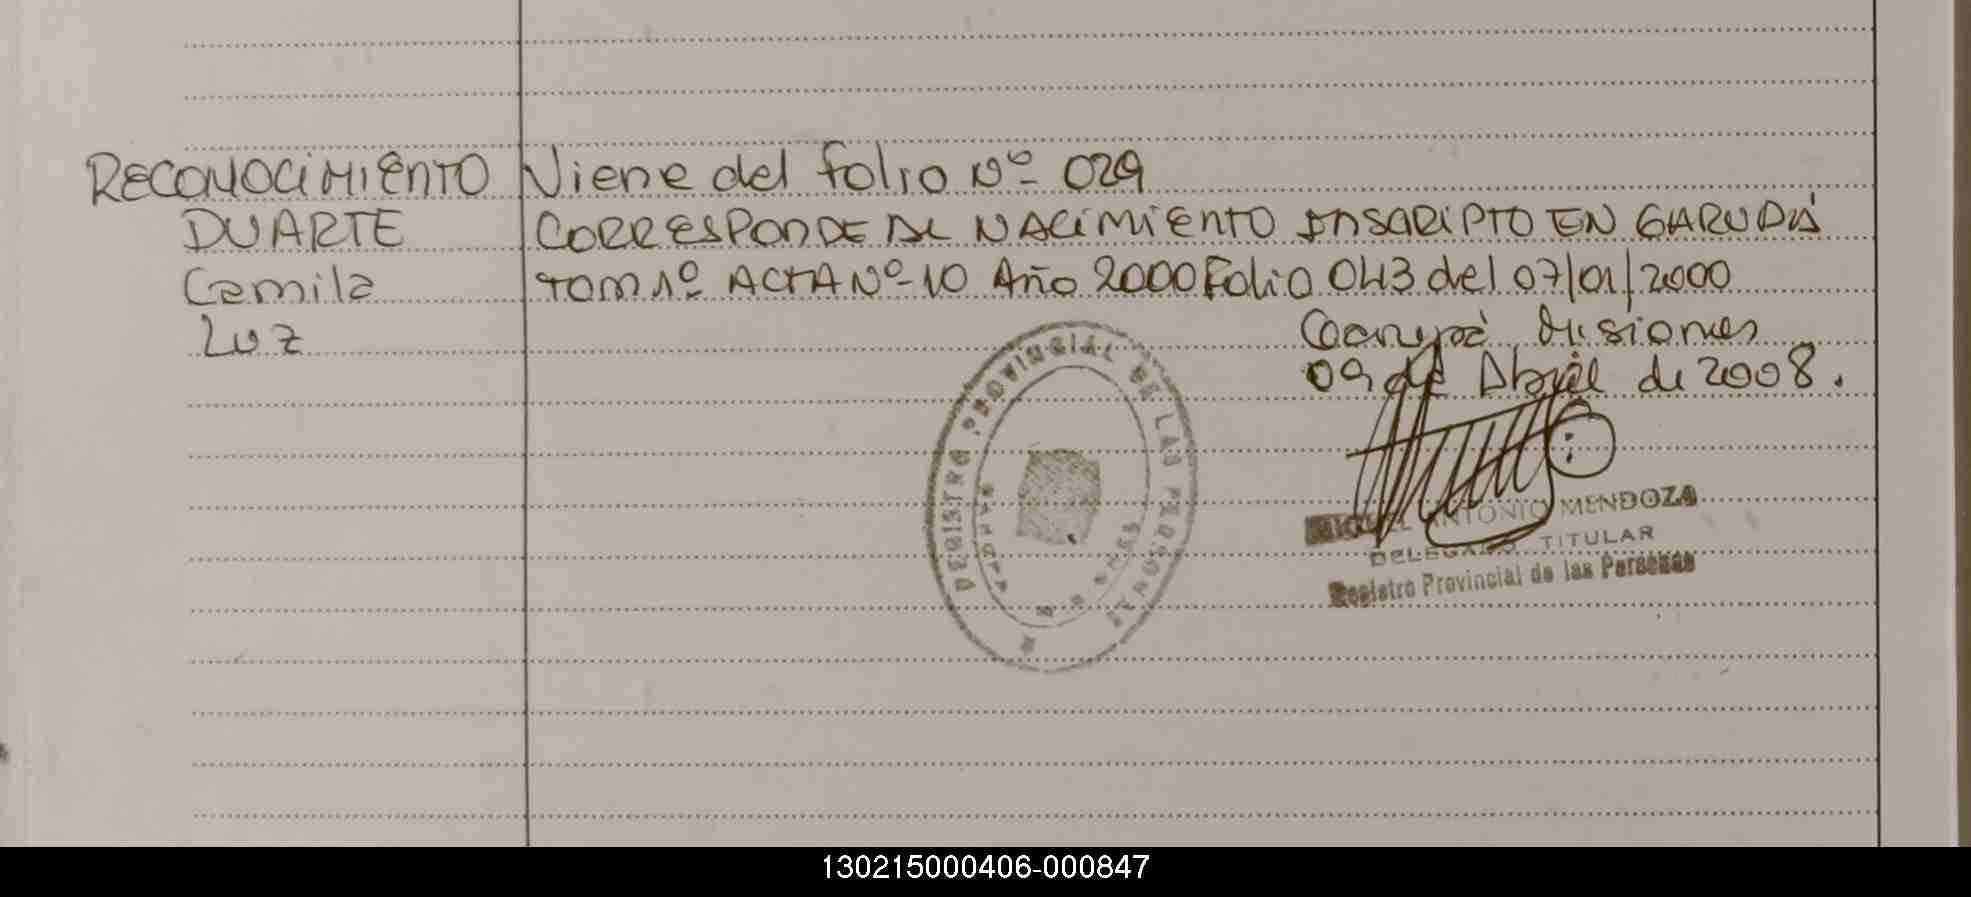 RECONOCIMIENTO Viene del folio Nº 029
DUARTE CORRESPONDE AL NACIMIENTO INSCRIPTO EN GARUPÁ
Camila TOM 1º ACTA Nº 10 Año 2000 Folio 043 del 07/01/2000
Luz Garupá, Misiones
09 de Abril de 2008.
REGISTRO PROVINCIAL DE LAS PERSONAS
GARUPA
MIGUEL ANTONIO MENDOZA
DELEGADO TITULAR
Registro Provincial de las Personas
130215000406-000847